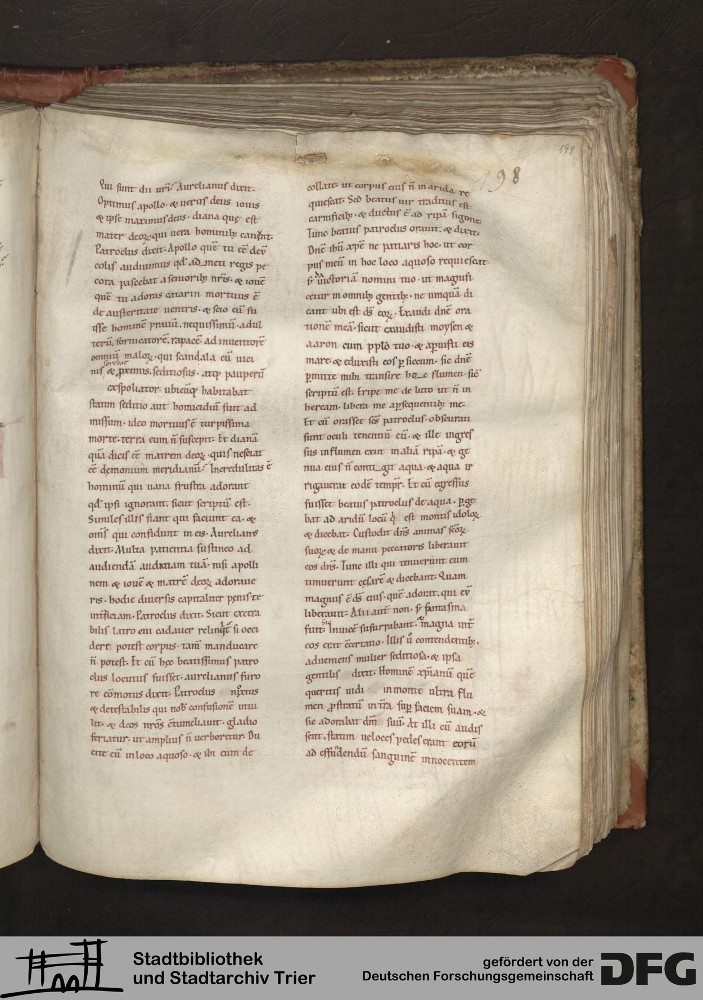 198
198
Qui sunt dii urī? Aurelianus dixit.
Optimus apollo. & uerus deus iouis
& ipse maximus deus. diana quę est
mater deoꝝ. qui uera hominibꝫ canunt.
Patroclus dixit. Apollo quē tu eē deū
colis audiuimus qd̄ admeti regis pe
cora pascebat a senioribꝫ nr̄is. & iouē
quē tu adoras catarri mortuus ē
de austeritate uentris. & scio eū fu
isse hominē prauū. nequissimū. adul
terū. fornicatorē. rapacē. ad inuentorē
omniū maloꝝ. qui scandala cū uici
nis & ꝓximis. seditiosus. atqꝫ pauperū
exspoliator. ubicūqꝫ habitabat
statim seditio aut homicidiū fuit ad
missum. ideo mortuus ē turpissima
morte. terra eum n̄ suscepit. Et dianā
quā dicis eē matrem deoꝝ. quis nesciat
eē demonium meridianū? Incredulitas ē
hominū qui uana frustra adorant
qd̄ ipsi ignorant. sicut scriptū est.
Similes illis fiant qui faciunt ea. &
om̄s qui confidunt in eis. Aurelianꝰ
dixit. Multa patientia sustineo ad
audiendā audatiam tuā. nisi apolli
nem & iouē & matrē deoꝝ adoraue
ris. hodie diuersis capitaliter penis te
interficiam. Patroclus dixit. Sicut execra
bilis latro eiꝰ cadauer relinqt̄ si occi
dere potest corpus. tam̄ manducare
n̄ potest. Et cū hęc beatissimus patro
clus locutus fuisset. aurelianus furo
re cōmotus dixit. Patroclus noxius
& detestabilis qui nob̄ confusionē intu
lit. & deos nr̄os cōtumeliauit. gladio
feriatur. ut amplius n̄ uerboretur. Du
cite eū in loco aquoso. & ibi eum de
collate. ut corpus eius n̄ in arida re
quiescat. Sed beatus uir traditus est
carnificibꝫ. & ductus ē ad ripā sigone.
Tunc beatus patroclus orauit. & dixit.
Dn̄e ihū xp̄e ne patiaris hoc. ut cor
pus meū in hoc loco aquoso requiescat
ꝑ uictoriā nomini tuo. ut magnifi
cetur in omnibꝫ gentibꝫ. ne umquā di
cant ubi est ds̄ eoꝝ. Exaudi dn̄e ora
tionē meā. sicut exaudisti moysen &
aaron cum pplō tuo. & apuisti eis
mare & eduxisti eos ꝑ siccum. sic dn̄e
ꝑmitte mihi transire hoc flumen. sic̄
scriptū est. Eripe me de luto ut n̄ in
heream. libera me a ꝑsequentibꝫ me.
Et cū orasset sc̄s patroclus. obscurati
sunt oculi tenentiū eū. & ille ingres
sus in flumen exiit in aliā ripā. & ge
nua eius n̄ contigit aqua. & aqua ir
rigauerat eodē tempr̄. Et cū egressus
fuisset beatus patroclus de aqua. ꝑge
bat ad aridū locū q̄ est montis idoloꝝ
& dicebat. Custodit dn̄s animas sc̄oꝝ
suoꝝ & de manu peccatoris liberauit
eos dn̄s. Tunc illi qui tenuerunt eum
timuerunt cęsarē & dicebant. Quam
magnus ē ds̄ eius. quē adorat. qui eū
liberauit. Alii aut̄ non. sꝫ fantasma
fuit. Inuicē susurrabant. magna int̄
eos erat cērtatio. Illis ū contendentibꝫ.
adueniens mulier seditiosa. & ipsa
gentilis dixit. Hominē xp̄ianū quē
queritis uidi in monte ultra flu
men ꝓstratū in tr̄a sup̄ faciem suam. &
sic adorabat dm̄ suū. At illi cū audis
sent. statim ueloces pedes erant eorū
ad effundendū sanguinē innocentem
Stadtbibliothek
und Stadtarchiv Trier
gefördert von der
Deutschen Forschungsgemeinschaft
DFG